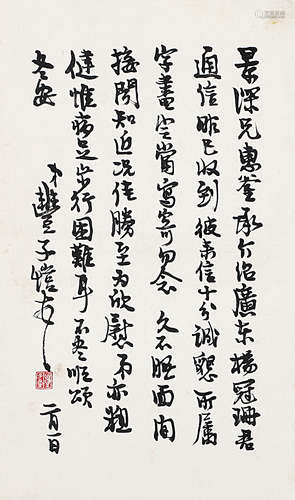 景深兄惠鉴承介绍廣东楊冠珊君
通信昨已收到彼来信十分诚懇所属
字畫定当寫寄勿念久不晤面闻
接閱知近况佳勝至为欣慰弟亦粗
健惟病足步行困難耳不尽顺颂
冬安
弟豐子愷上
一月一日